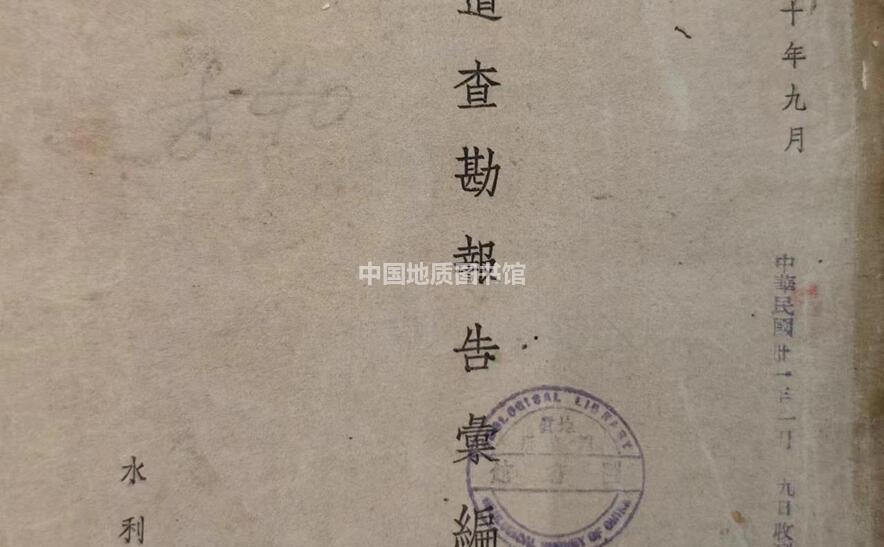 十年九月
中華民國廿一年一月九日收
道查勘報告彙編
水利
840
中国地质图书馆
GEOLOGICAL LIBRARY
GEOLOGICAL SURVEY OF CHINA